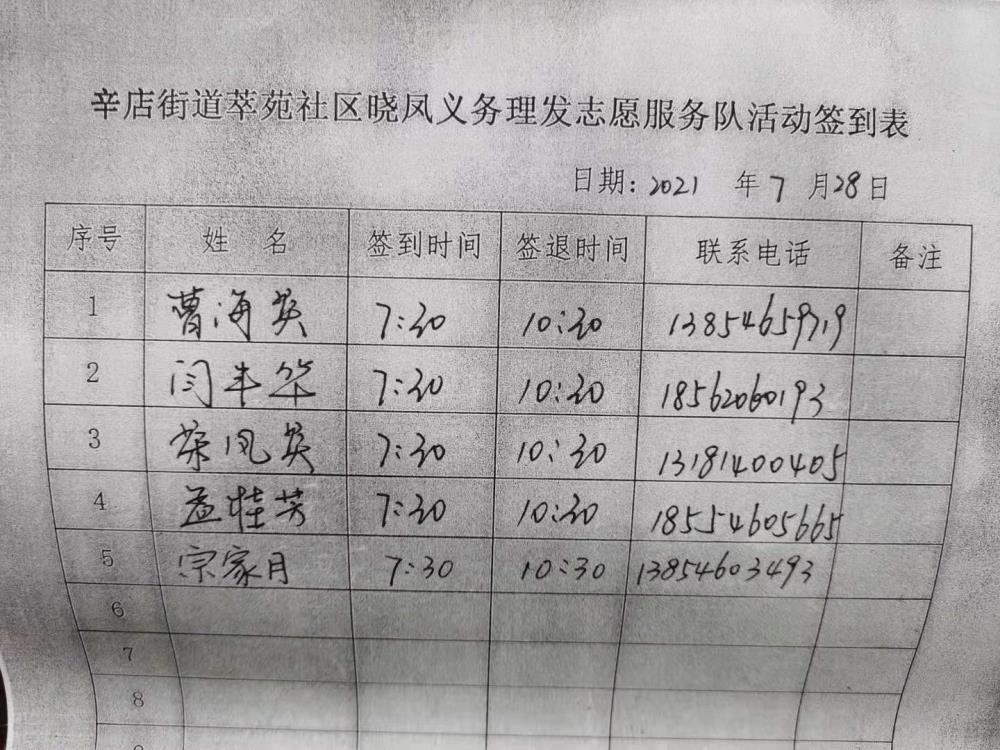 辛店街道萃苑社区晓凤义务理发志愿服务队活动签到表
日期：2021 年 7 月 28 日
序号 姓名 签到时间 签退时间 联系电话 备注
1 曹海英 7:30 10:30 13854659719
2 闫丰华 7:30 10:30 18562060193
3 荣凤英 7:30 10:30 13181400405
4 孟桂芳 7:30 10:30 18554605665
5 宗家月 7:30 10:30 13854603493
6
7
8